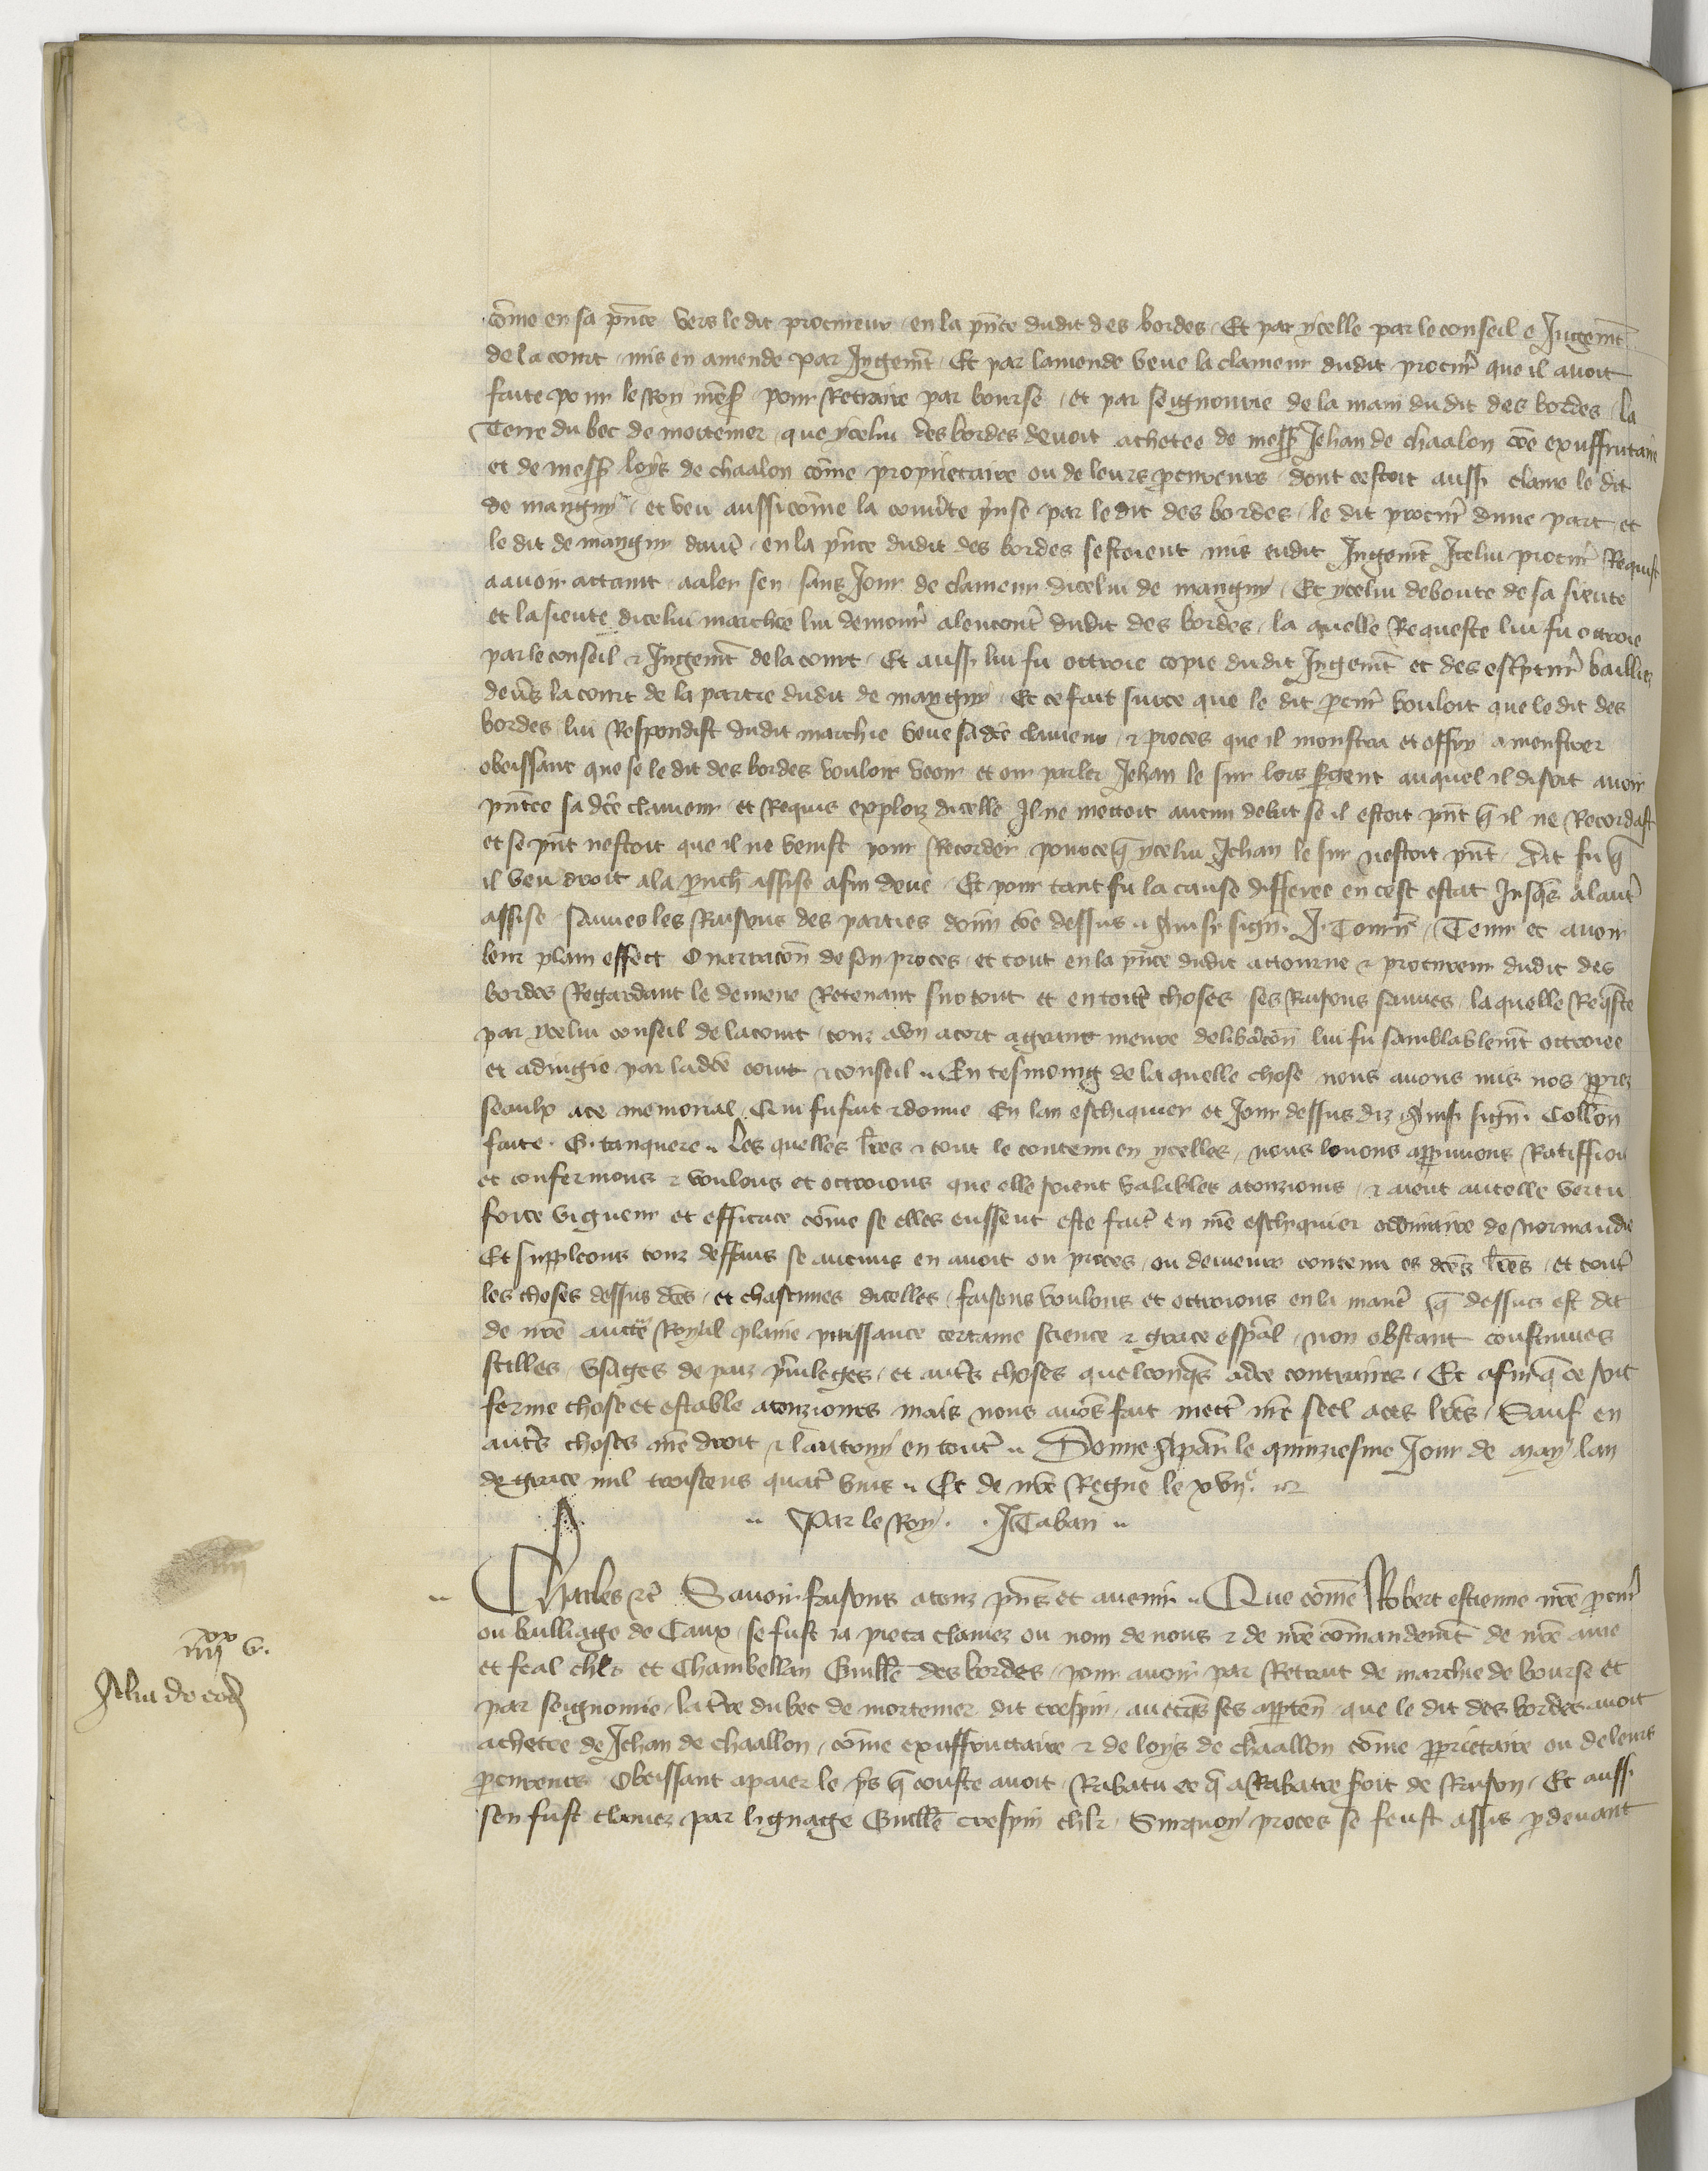 cōme en sa p̄nce vers le dit procureur en la p̄nce dudit des bordes Et par ycelle par le conseil & Jugem̄t
de la court mis en amende par Jugem̄t Et par lamende veue la clameur dudit procur̄ que il avoit
faite pour le Roy nr̄es̄ pour Retraire par bourse et par seignourie de la main du dit des bordes la
Terre du bec de mortemer que ycelui des bordes devoit achetee de mess̄ Jehan de chaalon cōe exuffrutaire
et de mess̄ loys de chaalon cōme proprietaire ou de leurs p̄cureurs dont cestoit auss̄ clame le dit
de mangny et veu aussi cōme la cōme par le dit des bordes le dit procur̄ dune part et
le dit de mangny daut̄ en la p̄nce dudit des bordes sestoient mis eudit Jugem̄t Icelui procur̄ Requist
a avoir attaint aaler sen sans Jour de clameur dicelui de mangny Et ycelui deboute de sa sieute
et la sieute dicelui marchie lui demour̄ alencont̄ dudit des bordes la quelle Requeste lui fu ottroie
par le conseil & Jugem̄t de la court Et auss̄ lui fu ottroie copie dudit Jugem̄t et des esc̄ptur̄ baillies
dev̄s la court de la partie dudit de mangny Et ce fait surce que le dit p̄cur̄ vouloit que le dit des
bordes lui Respondist dudit marchie veue sa dc̄e clameur & proces que il monstra et offry a monstrer
obeissant que se le dit des bordes vouloit veoir et oir parler Jehan le sur lors s̄gent auquel il disoit avoir
p̄ntee sa dc̄e clameur et Requis exploiz dicelle Il ne mettoit aucun debat se il estoit p̄nt q̄ il ne Recordast
et se p̄nt nestoit que il ne venist pour Recorder pource q̄ ycelui Jehan le sur nestoit p̄nt Dit fu q̄
il veu droit a la p̄uch̄ assise afin deue Et pour tant fu la cause differee en cest estat Jusq̄s a laut̄
assise sauves les Raisons des parties cōe dessus Ainsi sign̄. J. Tourn̄ Tenir et avoir
leur plain effect O narracōn de son proces et tout en la p̄nce dudit attourne & procureur dudit des
bordes Regardant le demene Retenant sur tout et en toutes choses ses Raisons sauves la quelle Req̄ste
par ycelui conseil de la court touz dun acort a grant meure delib̄acōn lui fu samblablem̄t ottroiee
et adiugie par ladc̄e court & conseil En tesmoing de la quelle chose nous avons mis nos ꝓpres
seaulx a ce memorial Qui fu fait & donne En lan eschiquier et Jour dessus diz Ainsi sign̄. Collon̄
faite. G. tanquere Les quelles lr̄es & tout le contenu en ycelles nous louons app̄uvons Ratiffions
et confermons & voulons et ottroions que elle soient valables a touzjours & aient autelle vertu
force vigueur et efficace cōme se elles eussent este fait̄ en nr̄e eschiquier ordinaire de normandie
Et suppleons touz deffaus se aucuns en avoit ou proces ou demeure contenu es dc̄es lr̄es et tout̄
les choses dessus dc̄es et chascunes dicelles faisons voulons et ottroions en la manier̄ q̄ dessus est dit
de nr̄e aucte Royal plaine puissance certaine science & grace esp̄al non obstant coustumes
stilles usages de pais p̄vileges et aut̄s choses quelconq̄s ad ce contraires Et afin q̄ ce soit
ferme chose et estable a touzjours mais nous avōs fait mect̄ nr̄e seel a ces lr̄es Sauf en
aut̄s choses nr̄e droit & lautruy en tout̄ Donne A par̄ le quinziesme Jour de may lan
de grace mil troiscens quat̄ vins Et de nr̄e Regne le xvije.
Par le Roy. J Tabari
Charles &c̄ Savoir faisons a touz p̄ns et avenir Que cōme Robert estienne nr̄e p̄cur̄
ou bailliage de Caux se fust ja pieca clamez ou nom de nous & de nr̄e cōmandem̄t de nr̄e ame
et feal chlr̄ et Chambellan Guille des bordes pour avoir par Retrait de marchie de bourse et
par seignourie la t̄re du bec de mortemer dit crespin avecq̄s ses apparten̄ que le dit des bordes avoit
achetee de Jehan de chaallon cōme exuffructaire & de loys de chaallon cōme ꝓprietaire ou de leurs
p̄cureurs Obeissant apaier le p̄s q̄ couste avoit Rabatu ce q̄ a Rabatre foit de Raison Et auss̄
sen fust clamez par lignage Guille crespin chlr̄ Surquoy proces se feust assis p̄devant
iiijxx v.
Alia de eod̄